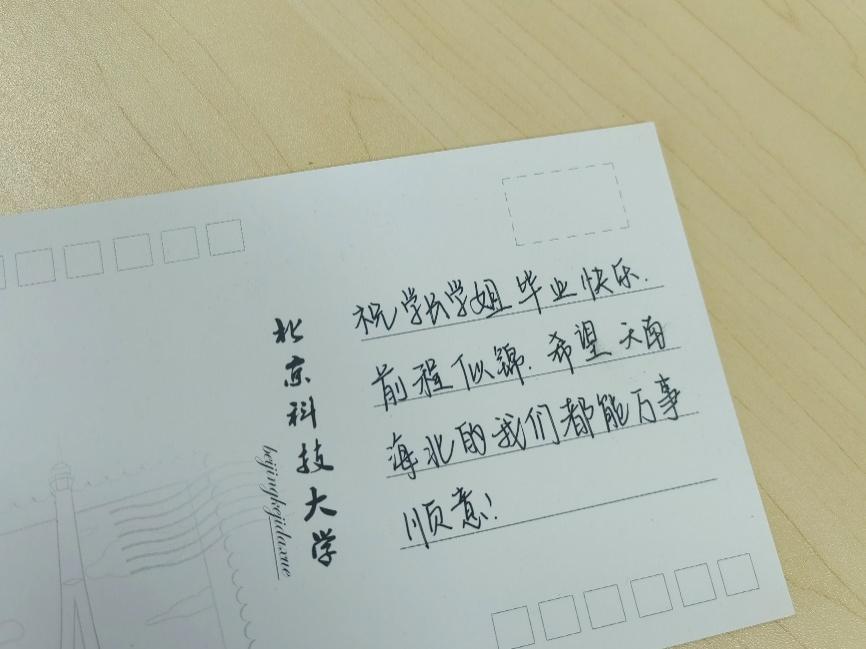 北京科技大学
beijingkejidaxue
祝学长学姐毕业快乐.
前程似锦.希望天南
海北的我们都能万事
顺意!